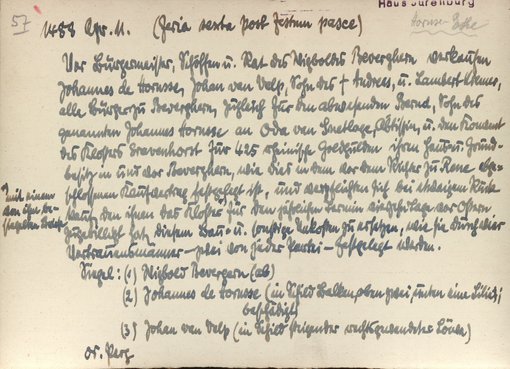 Haus Surenburg
57
1488 Apr. 11. (feria sexta post festum pasce)
Hornse-
Vor Bürgermeister, Schöffen u. Rat des Wigbolds Beverghern verkaufen
Johannes de Hornsse, Johan van Velp, Sohn des † Andreas, u. Lambert
alle Bürger zu Beverghern, zugleich für den abwesenden Bernd, Sohn des
genannten Johannes Hornsse an Oda van Snetlage, Äbtissin, u. den Konvent
des Klosters Gravenhorst für 425 rheinische Goldgulden ihren Haus u. Grund-
besitz in und vor Beverghern, wie dies in dem vor dem Richter zu Rene abge-
schlossenen Kaufvertrag festgelegt ist, und verpflichten sich bei etwaigem Rück-
kauf, den ihnen das Kloster für den jährlichen Termin vor Ostern
zugebilligt hat, diesem Bau- u. sonstige Unkosten zu ersetzen, wie sie durch vier
Vertrauensmänner - zwei von jeder Partei - festgelegt werden.
mit einem
von ihn be-
siegelten Briefe
Siegel: (1) Wigbold Bevergern (ab)
(2) Johannes de Hornsse (in Schild Balken, oben zwei, unten eine Lilie);
beschädigt
(3) Johan van Velp (in Schild steigender rechtsgewendeter Löwe)
Or. Perg.